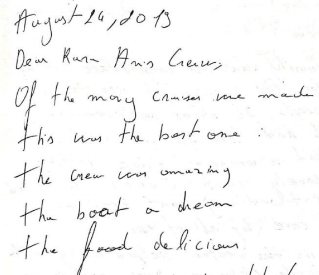 August 24, 2019
Dear Kara Anis Crew,
Of the many cruises we made
this was the best one :
the crew was amazing
the boat a dream
the food delicious